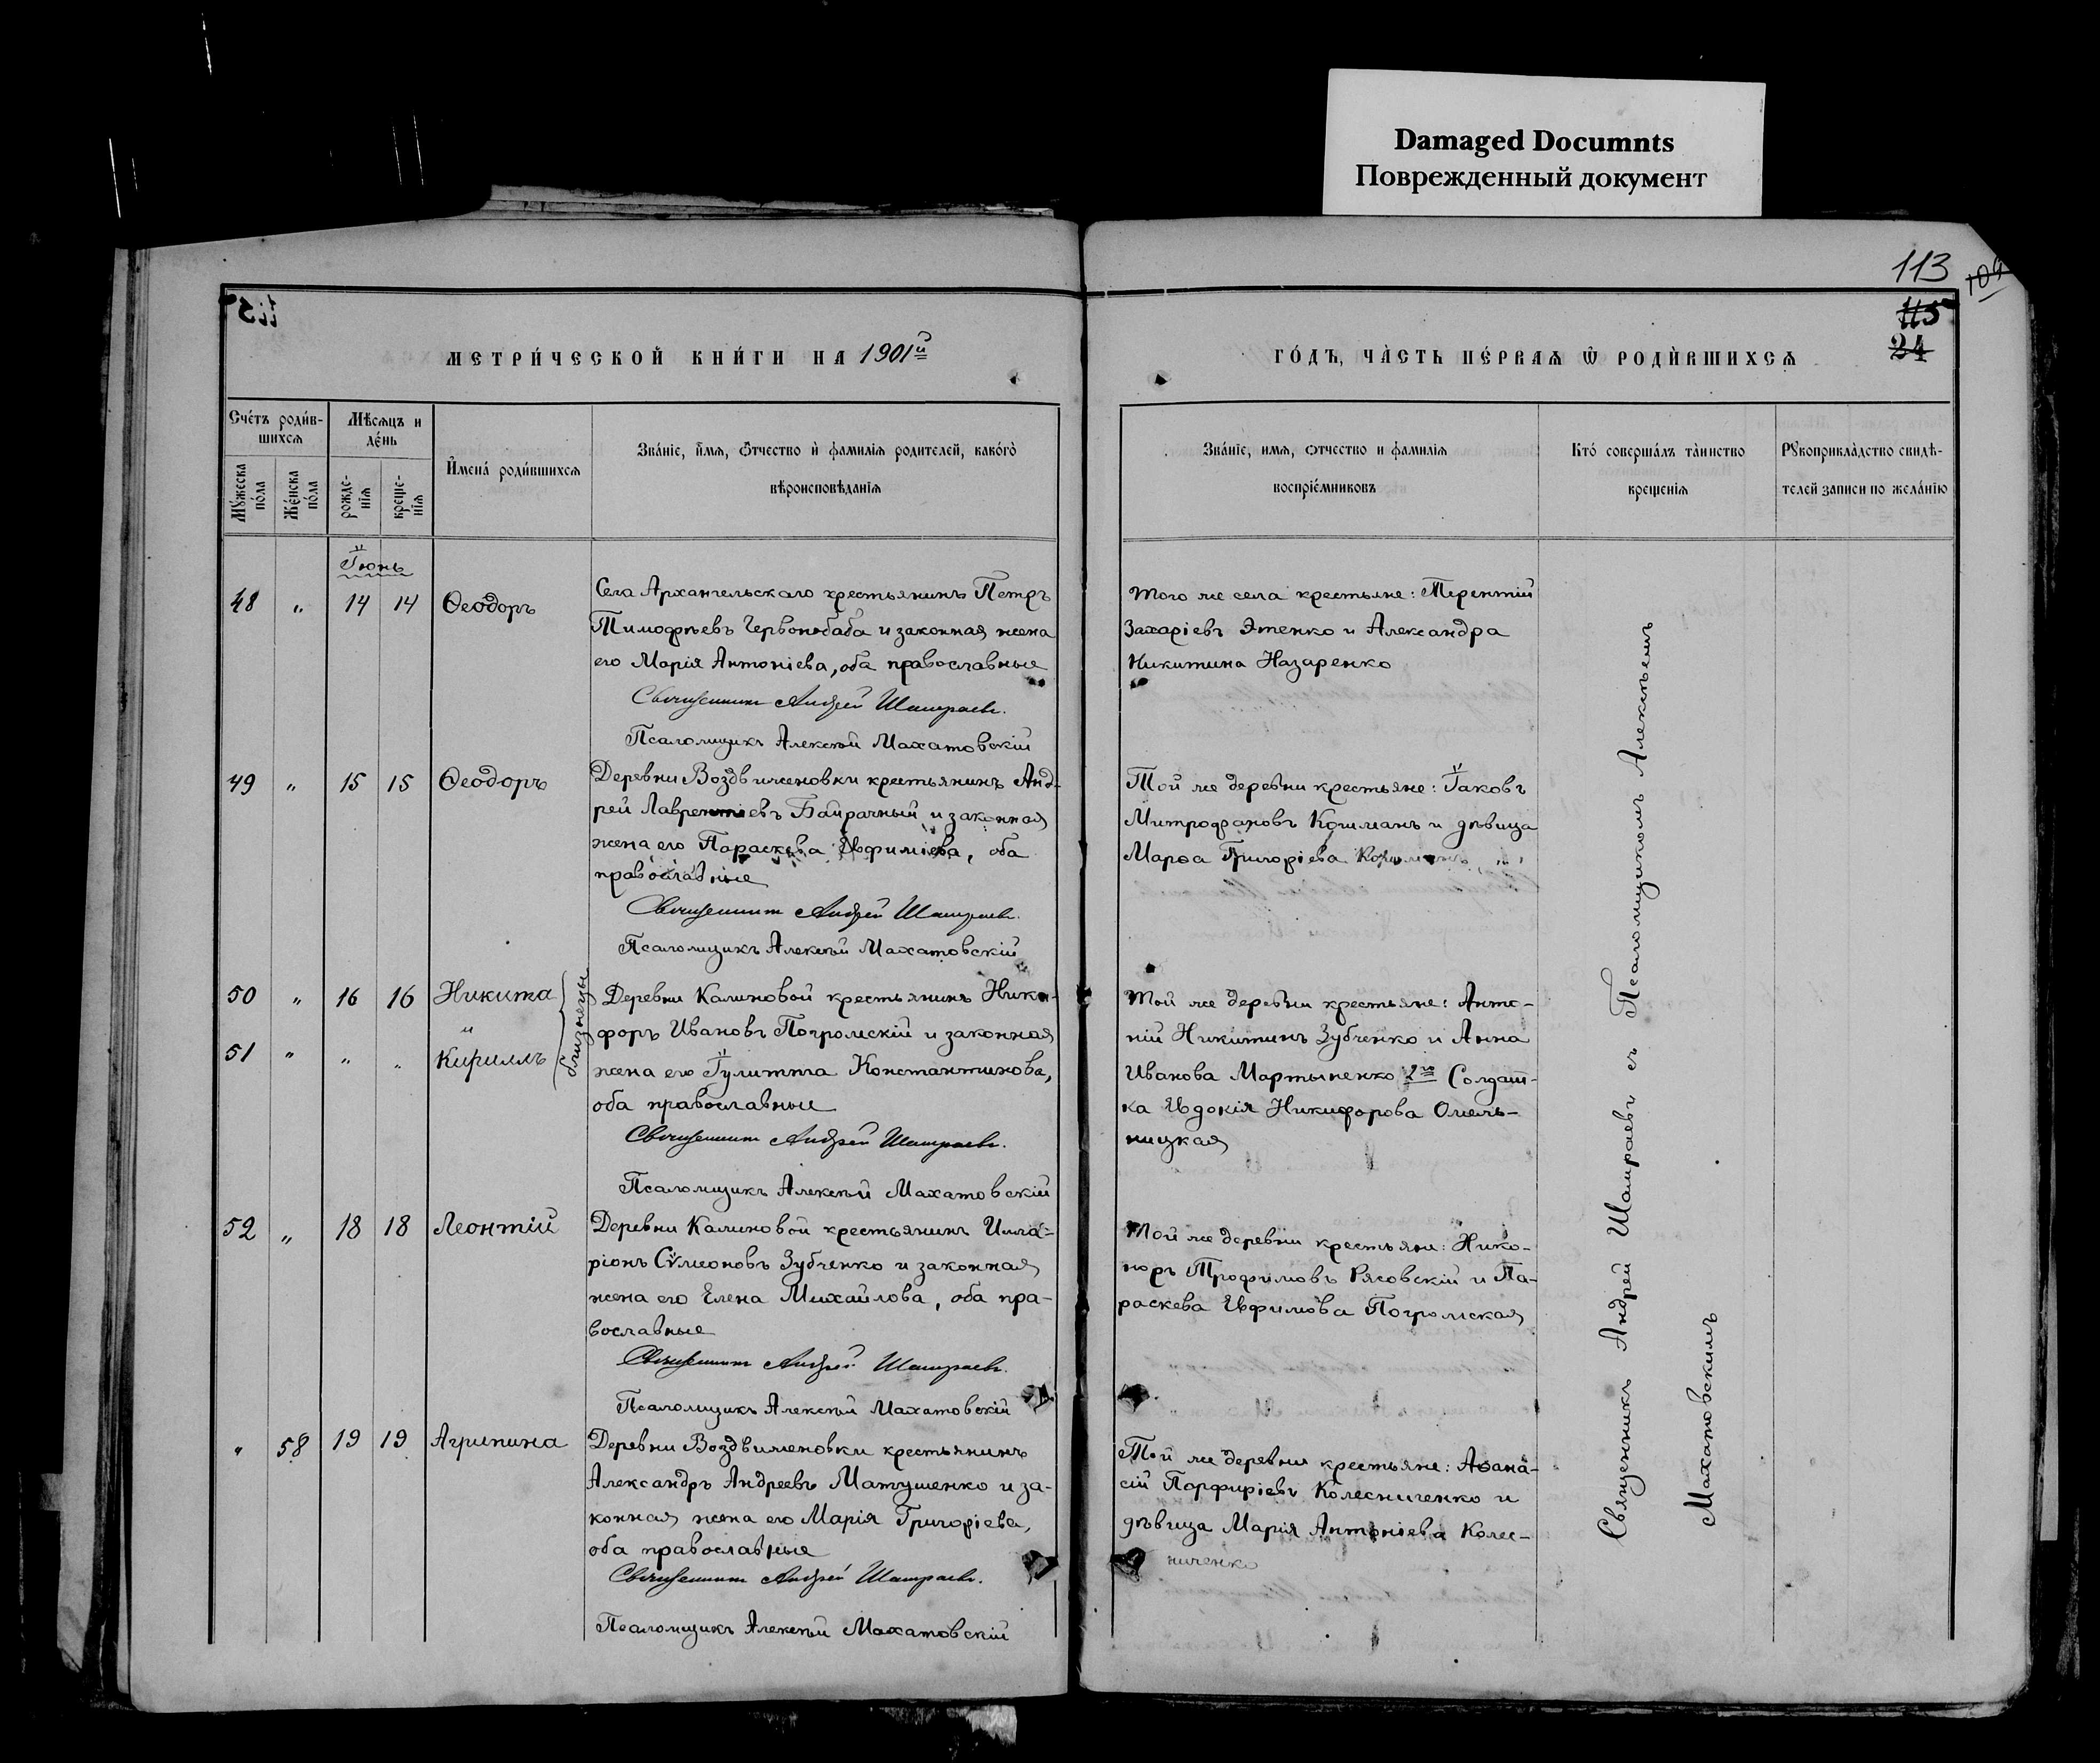 Damaged Documnts
Поврежденный документ
113
109
115
24
МЕТРИ́ЧЕСКОЙ КНИ́ГИ НА 1901й
ГО́ДЪ, ЧА̀СТЬ ПЕ́РВАѦ Ѡ҆ РОДЍВШИХСѦ
Сче́тъ роди́в-
шихсѧ
Мѣ́сѧцъ и
де́нь
Мꙋ́жеска
по́ла
Же́нска
по́ла
рожде-
нїѧ
креще-
нїѧ
И҆мена̀ роди́вшихсѧ
Зва́нїе, и҆́мѧ, ѻ҆́тчество и҆ фамилїѧ родителей, како́гѡ
вѣроисповѣ́данїѧ
Зва́нїе, имѧ, ѻтчество и фамилїѧ
воспрїе́мниковъ
Кто́ соверша́лъ та̀инство
креще́нїѧ
Рꙋкоприкла́дство свидѣ́-
телей записи по жела́нїю
Іюнь
48 „ 14 14 Ѳеодоръ
Села Архангельскаго крестьянинъ Петръ
Тимофѣевъ Червонобаба и законная жена
его Марія Антоніева, оба православные
Священникъ Андрей Шамраевъ.
Псаломщикъ Алексѣй Махатовскій
Того же села крестьяне: Терентій
Захаріевъ Этенко и Александра
Никитина Назаренко
49 „ 15 15 Ѳеодоръ
Деревни Воздвиженовки крестьянинъ Анд-
рей Лаврентіевъ Байрачный и законная
жена его Параскева Евфиміева, оба
православные
Священникъ Андрей Шамраевъ.
Псаломщикъ Алексѣй Махатовскій
Той же деревни крестьяне: Іаковъ
Митрофановъ Кошманъ и дѣвица
Марѳа Григоріева
50 „ 16 16 Никита
и
51 „ „ „ Кириллъ
близнецы
Деревни Калиновой крестьянинъ Ники-
форъ Ивановъ Погромскій и законная
жена его Іулитта Константинова,
оба православные
Священникъ Андрей Шамраевъ.
Псаломщикъ Алексѣй Махатовскій
Той же деревни крестьяне: Анто-
ній Никитинъ Зубченко и Анна
Иванова Мартыненко 2го Солдат-
ка Евдокія Никифорова Омель-
ницкая
52 „ 18 18 Леонтій
Деревни Калиновой крестьянинъ Илла-
ріонъ Сѵмеоновъ Зубченко и законная
жена его Елена Михайлова, оба пра-
вославные
Священникъ Андрей Шамраевъ.
Псаломщикъ Алексѣй Махатовскій
Той же деревни крестьяне: Нико-
норъ Трофимовъ Рясовскій и Па-
раскева Евфимова Погромская
„ 58 19 19 Агрипина
Деревни Воздвиженовки крестьянинъ
Александръ Андреевъ Матушенко и за-
конная жена его Марія Григоріева,
оба православные
Священникъ Андрей Шамраевъ.
Псаломщикъ Алексѣй Махатовскій
Той же деревни крестьяне: Аѳана-
сій Парфиріевъ Колесниченко и
дѣвица Марія Антоніева Колес-
ниченко
Священникъ Андрей Шамраевъ съ Псаломщикомъ Алексѣемъ
Махатовскимъ